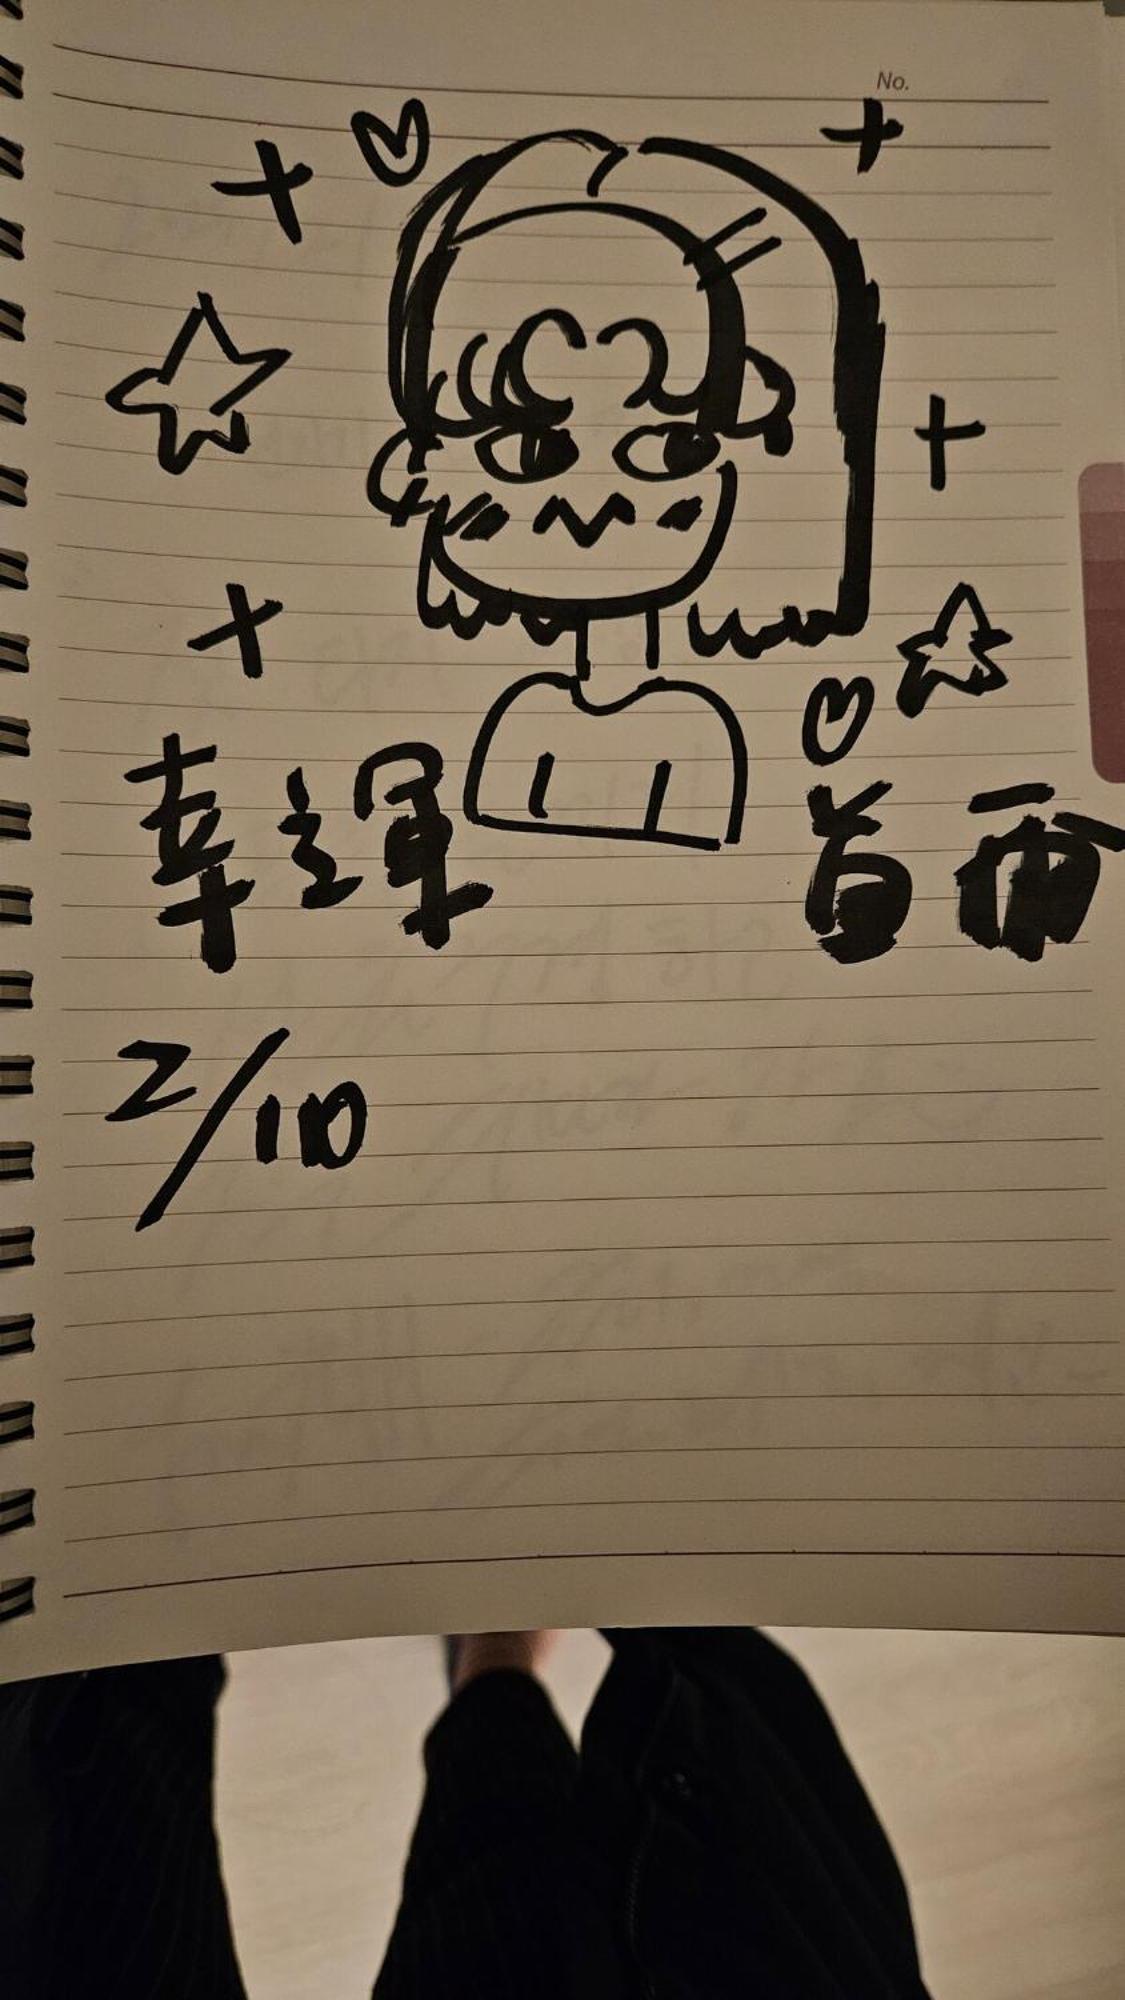 No.
幸運 首西
2/10